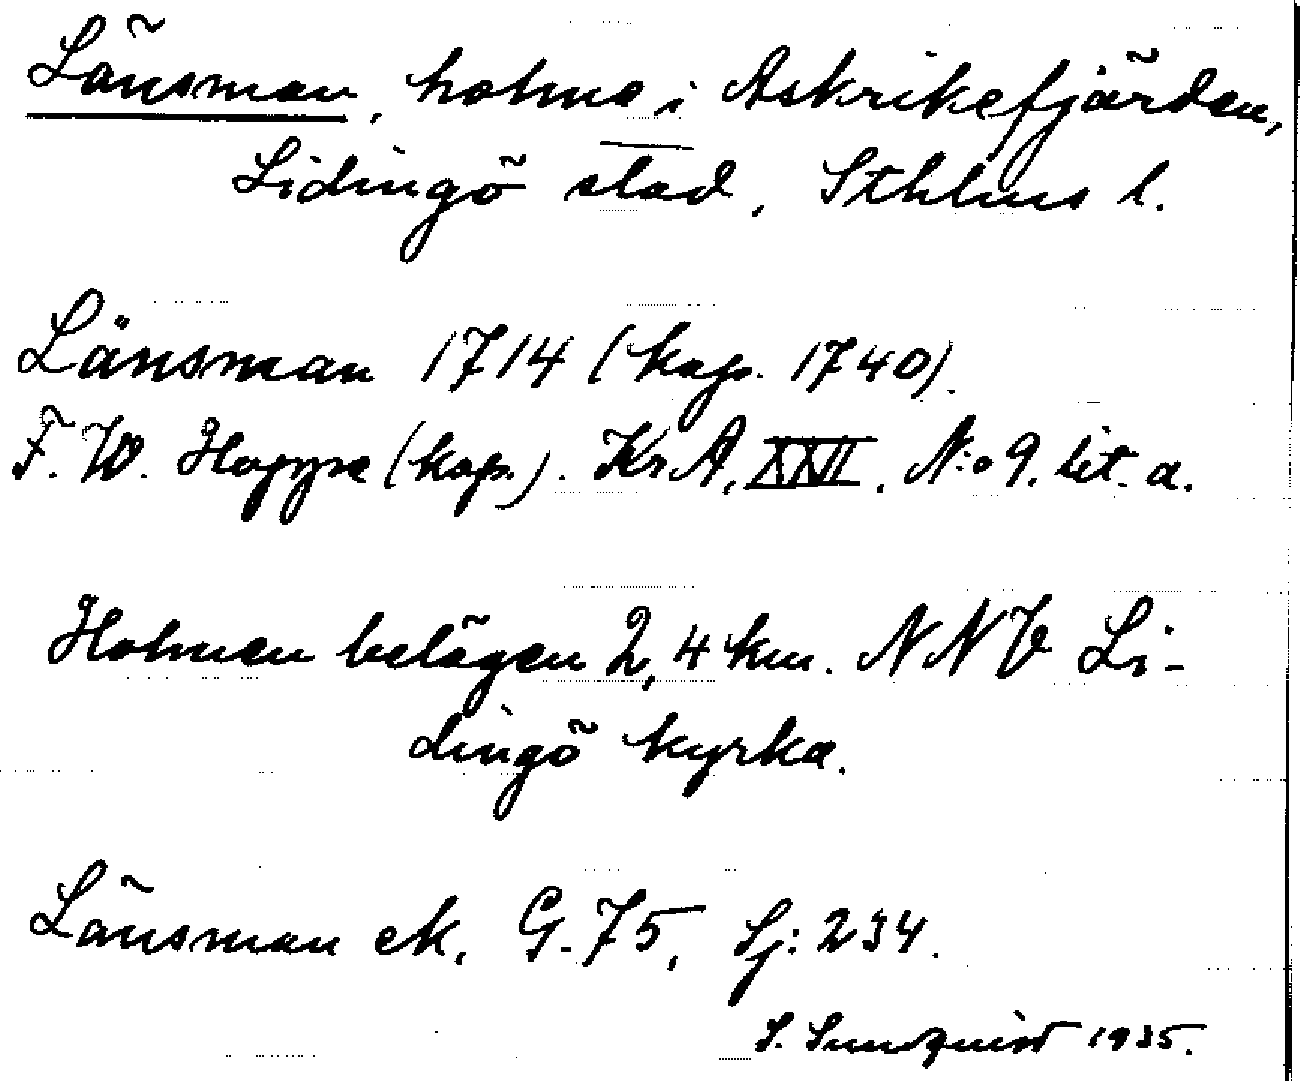 Länsman, holme i Askrikefjärden,
Lidingö stad, Sthlms l.
Länsman 1714 (kop. 1740).
F. W. Hoppe (kop.). KrA, XXII. N:o 9. lit. a.
Holmen belägen 2,4 km. NNV Li-
dingö kyrka.
Länsman ek. G. 75, Sj: 234.
S. Sundquist 1935.